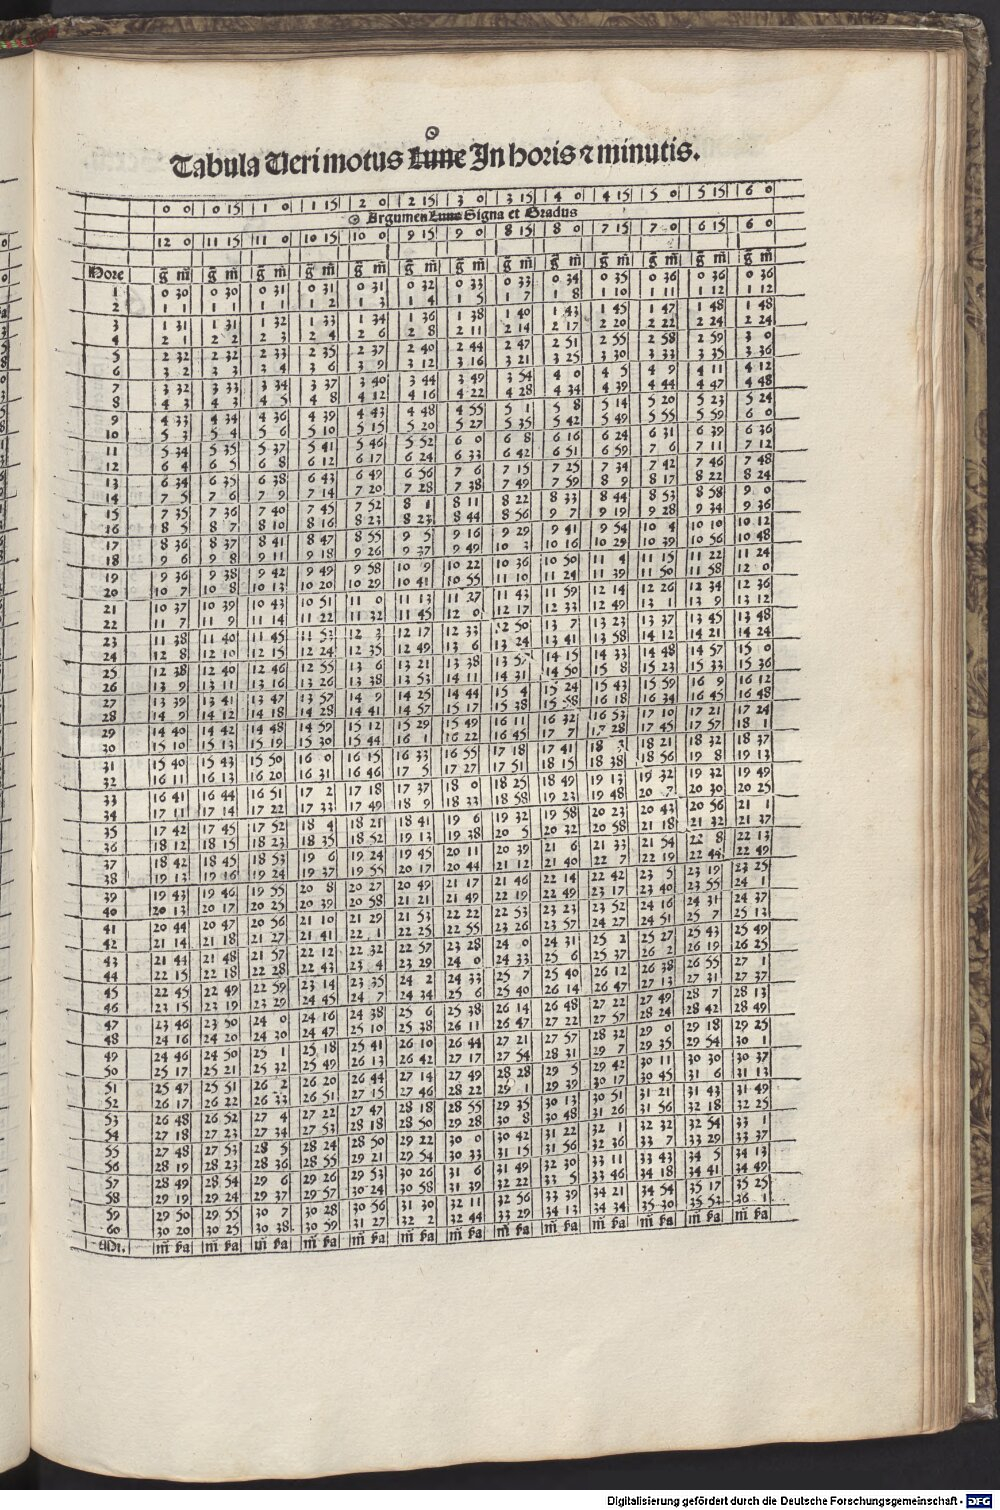 Tabula Ueri motus Lune In horis ⁊ minutis.
0 0 | 0 15 | 1 0 | 1 15 | 2 0 | 2 15 | 3 0 | 3 15 | 4 0 | 4 15 | 5 0 | 5 15 | 6 0
☉ Argumen Lune Signa et Gradus
12 0 | 11 15 | 11 0 | 10 15 | 10 0 | 9 15 | 9 0 | 8 15 | 8 0 | 7 15 | 7 0 | 6 15 | 6 0
Hore | g̃ m̃ | g̃ m̃ | g̃ m̃ | g̃ m̃ | g̃ m̃ | g̃ m̃ | g̃ m̃ | g̃ m̃ | g̃ m̃ | g̃ m̃ | g̃ m̃ | g̃ m̃ | g̃ m̃
1 | 0 30 | 0 30 | 0 31 | 0 31 | 0 31 | 0 32 | 0 33 | 0 33 | 0 34 | 0 35 | 0 36 | 0 36 | 0 36
2 | 1 1 | 1 1 | 1 1 | 1 2 | 1 3 | 1 4 | 1 5 | 1 7 | 1 8 | 1 10 | 1 11 | 1 12 | 1 12
3 | 1 31 | 1 31 | 1 32 | 1 33 | 1 34 | 1 36 | 1 38 | 1 40 | 1 43 | 1 45 | 1 47 | 1 48 | 1 48
4 | 2 1 | 2 2 | 2 3 | 2 4 | 2 6 | 2 8 | 2 11 | 2 14 | 2 17 | 2 20 | 2 22 | 2 24 | 2 24
5 | 2 32 | 2 32 | 2 33 | 2 35 | 2 37 | 2 40 | 2 44 | 2 47 | 2 51 | 2 55 | 2 58 | 2 59 | 3 0
6 | 3 2 | 3 3 | 3 4 | 3 6 | 3 9 | 3 12 | 3 16 | 3 21 | 3 25 | 3 30 | 3 33 | 3 35 | 3 36
7 | 3 32 | 3 33 | 3 34 | 3 37 | 3 40 | 3 44 | 3 49 | 3 54 | 4 0 | 4 5 | 4 9 | 4 11 | 4 12
8 | 4 3 | 4 3 | 4 5 | 4 8 | 4 12 | 4 16 | 4 22 | 4 28 | 4 34 | 4 39 | 4 44 | 4 47 | 4 48
9 | 4 33 | 4 34 | 4 36 | 4 39 | 4 43 | 4 48 | 4 55 | 5 1 | 5 8 | 5 14 | 5 20 | 5 23 | 5 24
10 | 5 3 | 5 4 | 5 6 | 5 10 | 5 15 | 5 20 | 5 27 | 5 35 | 5 42 | 5 49 | 5 55 | 5 59 | 6 0
11 | 5 34 | 5 35 | 5 37 | 5 41 | 5 46 | 5 52 | 6 0 | 6 8 | 6 16 | 6 24 | 6 31 | 6 39 | 6 36
12 | 6 4 | 6 5 | 6 8 | 6 12 | 6 17 | 6 24 | 6 33 | 6 42 | 6 51 | 6 59 | 7 6 | 7 11 | 7 12
13 | 6 34 | 6 35 | 6 38 | 6 43 | 6 49 | 6 56 | 7 6 | 7 15 | 7 25 | 7 34 | 7 42 | 7 46 | 7 48
14 | 7 5 | 7 6 | 7 9 | 7 14 | 7 20 | 7 28 | 7 38 | 7 49 | 7 59 | 8 9 | 8 17 | 8 22 | 8 24
15 | 7 35 | 7 36 | 7 40 | 7 45 | 7 52 | 8 1 | 8 11 | 8 22 | 8 33 | 8 44 | 8 53 | 8 58 | 9 0
16 | 8 5 | 8 7 | 8 10 | 8 16 | 8 23 | 8 23 | 8 44 | 8 56 | 9 7 | 9 19 | 9 28 | 9 34 | 9 36
17 | 8 36 | 8 37 | 8 41 | 8 47 | 8 55 | 9 5 | 9 16 | 9 29 | 9 41 | 9 54 | 10 4 | 10 10 | 10 12
18 | 9 6 | 9 8 | 9 11 | 9 18 | 9 26 | 9 37 | 9 49 | 10 3 | 10 16 | 10 29 | 10 39 | 10 56 | 10 48
19 | 9 36 | 9 38 | 9 42 | 9 49 | 9 58 | 10 9 | 10 22 | 10 36 | 10 50 | 11 4 | 11 15 | 11 22 | 11 24
20 | 10 7 | 10 8 | 10 13 | 10 20 | 10 29 | 10 41 | 10 55 | 11 10 | 11 24 | 11 39 | 11 50 | 11 58 | 12 0
21 | 10 37 | 10 39 | 10 43 | 10 51 | 11 0 | 11 13 | 11 27 | 11 43 | 11 59 | 12 14 | 12 26 | 12 34 | 12 36
22 | 11 7 | 11 9 | 11 14 | 11 22 | 11 32 | 11 45 | 12 0 | 12 17 | 12 33 | 12 49 | 13 1 | 13 9 | 13 12
23 | 11 38 | 11 40 | 11 45 | 11 53 | 12 3 | 12 17 | 12 33 | 12 50 | 13 7 | 13 23 | 13 37 | 13 45 | 13 48
24 | 12 8 | 12 10 | 12 15 | 12 24 | 12 35 | 12 49 | 13 6 | 13 24 | 13 41 | 13 58 | 14 12 | 14 21 | 14 24
25 | 12 38 | 12 40 | 12 46 | 12 55 | 13 6 | 13 21 | 13 38 | 13 | 14 15 | 14 33 | 14 48 | 14 57 | 15 0
26 | 13 9 | 13 11 | 13 16 | 13 26 | 13 38 | 13 53 | 14 11 | 14 31 | 14 50 | 15 8 | 15 23 | 15 33 | 15 36
27 | 13 39 | 13 41 | 13 47 | 13 57 | 14 9 | 14 25 | 14 44 | 15 4 | 15 24 | 15 43 | 15 59 | 16 9 | 16 12
28 | 14 9 | 14 12 | 14 18 | 14 28 | 14 41 | 14 57 | 15 17 | 15 38 | 15 58 | 16 18 | 16 34 | 16 45 | 16 48
29 | 14 40 | 14 42 | 14 48 | 14 59 | 15 12 | 15 29 | 15 49 | 16 11 | 16 32 | 16 53 | 17 10 | 17 21 | 17 24
30 | 15 10 | 15 13 | 15 19 | 15 30 | 15 44 | 16 1 | 16 22 | 16 45 | 17 7 | 17 28 | 17 45 | 17 57 | 18 1
31 | 15 40 | 15 43 | 15 50 | 16 0 | 16 15 | 16 33 | 16 55 | 17 18 | 17 41 | 18 3 | 18 21 | 18 32 | 18 37
32 | 16 11 | 16 13 | 16 20 | 16 31 | 16 46 | 17 5 | 17 27 | 17 51 | 18 15 | 18 38 | 18 56 | 19 8 | 19 13
33 | 16 41 | 16 44 | 16 51 | 17 2 | 17 18 | 17 37 | 18 0 | 18 25 | 18 49 | 19 13 | 19 32 | 19 32 | 19 49
34 | 17 11 | 17 14 | 17 22 | 17 33 | 17 49 | 18 9 | 18 33 | 18 58 | 19 23 | 19 48 | 20 7 | 20 30 | 20 25
35 | 17 42 | 17 45 | 17 52 | 18 4 | 18 21 | 18 41 | 19 6 | 19 32 | 19 58 | 20 23 | 20 43 | 20 56 | 21 1
36 | 18 12 | 18 15 | 18 23 | 18 35 | 18 52 | 19 13 | 19 38 | 20 5 | 20 32 | 20 58 | 21 18 | 21 32 | 21 37
37 | 18 42 | 18 45 | 18 53 | 19 6 | 19 24 | 19 45 | 20 11 | 20 39 | 21 6 | 21 33 | 21 54 | 22 8 | 22 13
38 | 19 13 | 19 16 | 19 24 | 19 37 | 19 55 | 20 17 | 20 44 | 21 12 | 21 40 | 22 7 | 22 19 | 22 44 | 22 49
39 | 19 43 | 19 46 | 19 55 | 20 8 | 20 27 | 20 49 | 21 17 | 21 46 | 22 14 | 22 42 | 23 5 | 23 19 | 23 25
40 | 20 13 | 20 17 | 20 25 | 20 39 | 20 58 | 21 21 | 21 49 | 22 19 | 22 49 | 23 17 | 23 40 | 23 55 | 24 1
41 | 20 44 | 20 47 | 20 56 | 21 10 | 21 29 | 21 53 | 22 22 | 22 53 | 23 23 | 23 52 | 24 16 | 24 31 | 24 37
42 | 21 14 | 21 18 | 21 27 | 21 41 | 22 1 | 22 25 | 22 55 | 23 26 | 23 57 | 24 27 | 24 51 | 25 7 | 25 13
43 | 21 44 | 21 48 | 21 57 | 22 12 | 22 32 | 22 57 | 23 28 | 24 0 | 24 31 | 25 2 | 25 27 | 25 43 | 25 49
44 | 22 15 | 22 18 | 22 28 | 22 43 | 23 4 | 23 29 | 24 0 | 24 33 | 25 6 | 25 37 | 26 2 | 26 19 | 26 25
45 | 22 45 | 22 49 | 22 59 | 23 14 | 23 35 | 24 2 | 24 33 | 25 7 | 25 40 | 26 12 | 26 38 | 26 55 | 27 1
46 | 23 15 | 23 19 | 23 29 | 24 45 | 24 7 | 24 34 | 25 6 | 25 40 | 26 14 | 26 47 | 27 13 | 27 31 | 27 37
47 | 23 46 | 23 50 | 24 0 | 24 16 | 24 38 | 25 6 | 25 38 | 26 14 | 26 48 | 27 22 | 27 49 | 28 7 | 28 13
48 | 24 16 | 24 20 | 24 30 | 24 47 | 25 10 | 25 38 | 26 11 | 26 47 | 27 22 | 27 57 | 28 24 | 28 42 | 28 49
49 | 24 46 | 24 50 | 25 1 | 25 18 | 25 41 | 26 10 | 26 44 | 27 21 | 27 57 | 28 32 | 29 0 | 29 18 | 29 25
50 | 25 17 | 25 21 | 25 32 | 25 49 | 26 13 | 26 42 | 27 17 | 27 54 | 28 31 | 29 7 | 29 35 | 29 54 | 30 1
51 | 25 47 | 25 51 | 26 2 | 26 20 | 26 44 | 27 14 | 27 49 | 28 28 | 29 5 | 29 42 | 30 11 | 30 30 | 30 37
52 | 26 17 | 26 22 | 26 33 | 26 51 | 27 15 | 27 46 | 28 22 | 29 1 | 29 39 | 30 17 | 30 45 | 31 6 | 31 13
53 | 26 48 | 26 52 | 27 4 | 27 22 | 27 47 | 28 18 | 28 55 | 29 35 | 30 13 | 30 51 | 31 21 | 31 43 | 31 49
54 | 27 18 | 27 23 | 27 34 | 27 53 | 28 18 | 28 50 | 29 28 | 30 8 | 30 48 | 31 26 | 31 56 | 32 18 | 32 25
55 | 27 48 | 27 53 | 28 5 | 28 24 | 28 50 | 29 22 | 30 0 | 30 42 | 31 22 | 32 1 | 32 32 | 32 54 | 33 1
56 | 28 19 | 28 23 | 28 36 | 28 55 | 29 21 | 29 54 | 30 33 | 31 15 | 31 56 | 32 36 | 33 7 | 33 29 | 33 37
57 | 28 49 | 28 54 | 29 6 | 29 26 | 29 53 | 30 26 | 31 6 | 31 49 | 32 30 | 33 11 | 33 43 | 34 5 | 34 13
58 | 29 19 | 29 24 | 29 37 | 29 57 | 30 24 | 30 58 | 31 39 | 32 22 | 33 5 | 33 46 | 34 18 | 34 41 | 34 49
59 | 29 50 | 29 55 | 30 7 | 30 28 | 30 56 | 31 30 | 32 11 | 32 56 | 33 39 | 34 21 | 34 54 | 35 17 | 35 25
60 | 30 20 | 30 25 | 30 38 | 30 59 | 31 27 | 32 2 | 32 44 | 33 29 | 34 13 | 34 34 | 35 30 | 35 53 | 36 1
Mi. | m̃ ẜa | m̃ ẜa | m̃ ẜa | m̃ ẜa | m̃ ẜa | m̃ ẜa | m̃ ẜa | m̃ ẜa | m̃ ẜa | m̃ ẜa | m̃ ẜa | m̃ ẜa | m̃ ẜa
Digitalisierung gefördert durch die Deutsche Forschungsgemeinschaft - DFG